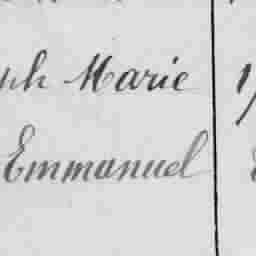 Marie
Emmanuel